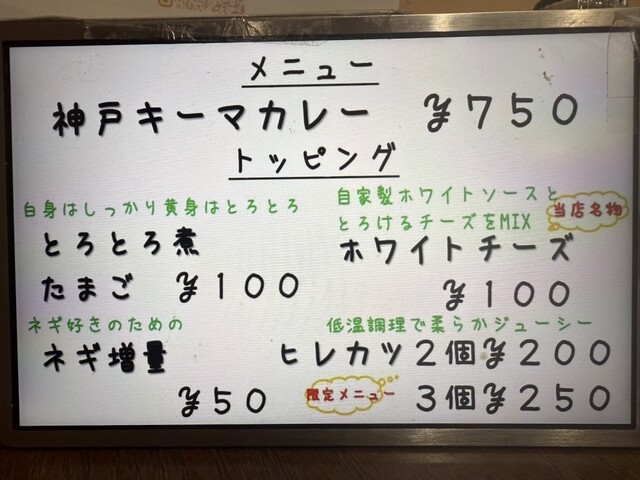 メニュー
神戸キーマカレー ¥750
トッピング
白身はしっかり黄身はとろとろ
とろとろ煮
たまご ¥100
自家製ホワイトソースと
とろけるチーズをMIX
当店名物
ホワイトチーズ
¥100
ネギ好きのための
ネギ増量
¥50
低温調理で柔らかジューシー
ヒレカツ 2個¥200
限定メニュー
3個¥250